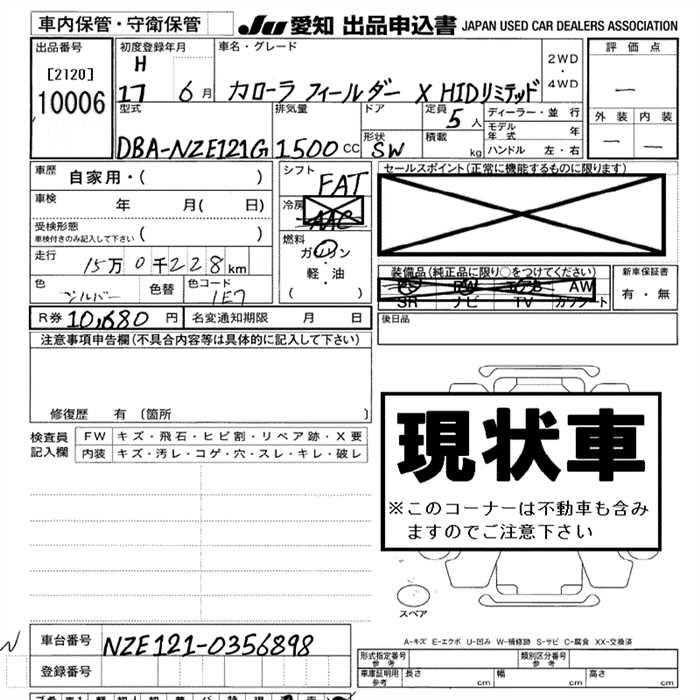 車内保管・守衛保管
JU 愛知 出品申込書 JAPAN USED CAR DEALERS ASSOCIATION
出品番号
[2120]
10006
初度登録年月
H
17 6月
車名・グレード
カローラ フィールダー X HIDリミテッド
2WD
・
4WD
評価点
—
外装 内装
— —
型式
DBA-NZE121G
排気量
1500cc
ドア
形状
SW
定員
5人
積載
kg
ディーラー・並行
モデル年式 年
ハンドル 左・右
車歴
自家用・( )
車検 年 月( 日)
受検形態
車検付きのみ記入して下さい ( )
走行 15万0千228km
色 シルバー 色替 色コード 1E7
シフト
FAT
冷房
AAC
燃料
ガソリン
・
軽・油
( )
セールスポイント(正常に機能するものに限ります)
装備品(純正品に限り○をつけてください)
AW
SR ナビ TV カワシート
新車保証書
有・無
R券 10,680円 名変通知期限 月 日
後日品
注意事項申告欄(不具合内容等は具体的に記入して下さい)
修復歴 有 〔箇所 〕
検査員記入欄
FW キズ・飛石・ヒビ割・リペア跡・X要
内装 キズ・汚レ・コゲ・穴・スレ・キレ・破レ
現状車
※このコーナーは不動車も含み
ますのでご注意下さい
スペア
A-キズ E-エクボ U-凹み W-補修跡 S-サビ C-腐食 XX-交換済
車台番号 NZE121-0356898
登録番号
形式指定番号 参考
類別区分番号 参考
車庫証明用 参考 長さ cm 幅 cm 高さ cm